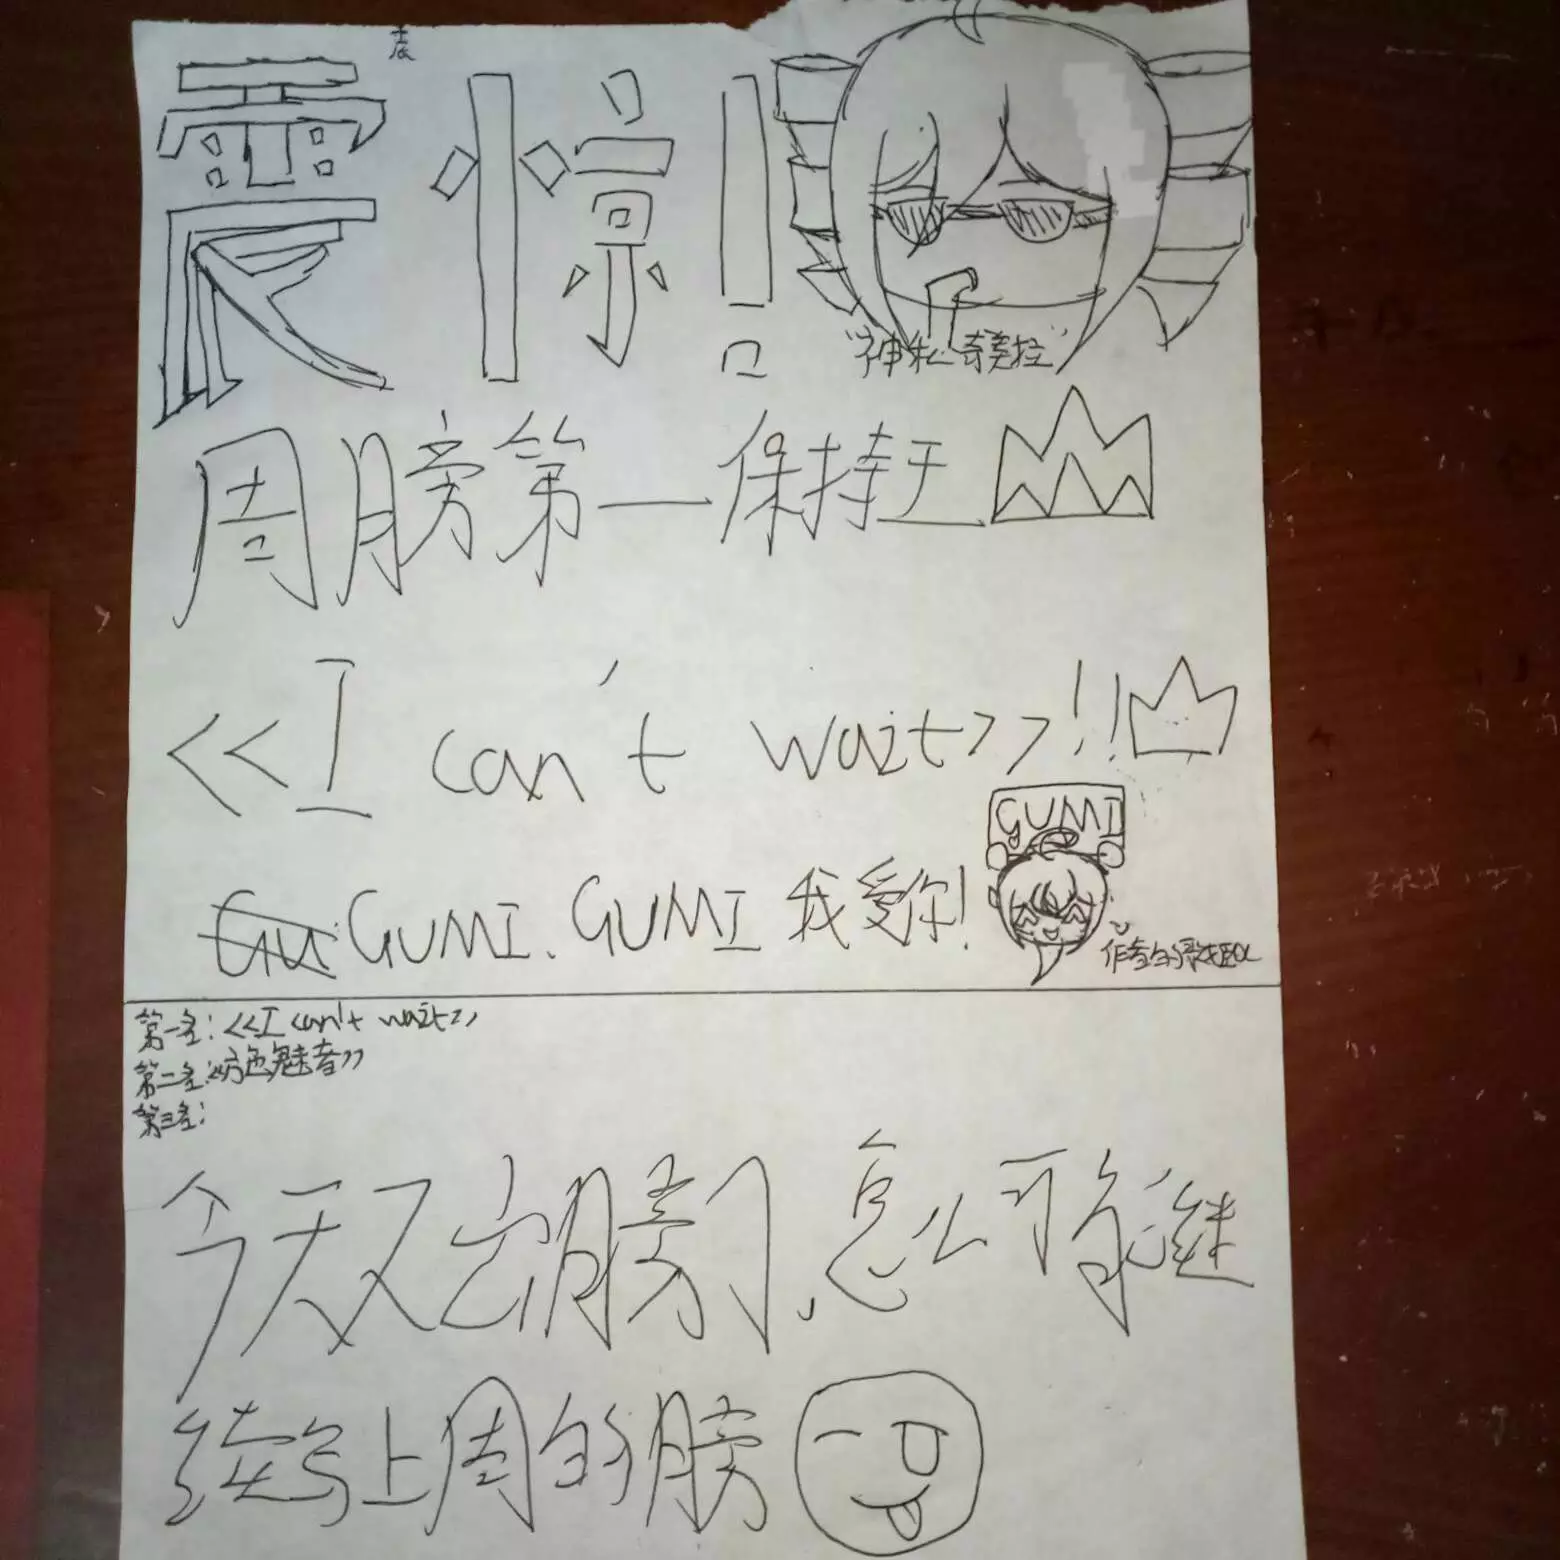 震惊!
"神秘奇美拉"
周膀第一保持王
<<I can't wait>>!!
GUMI
Gu GUMI、GUMI 我爱你!
作者的
第一名:<<I can't wait>>
第二名:<<色魅者>>
第三名:
今天又出膀了,怎么可能继
续写上周的膀